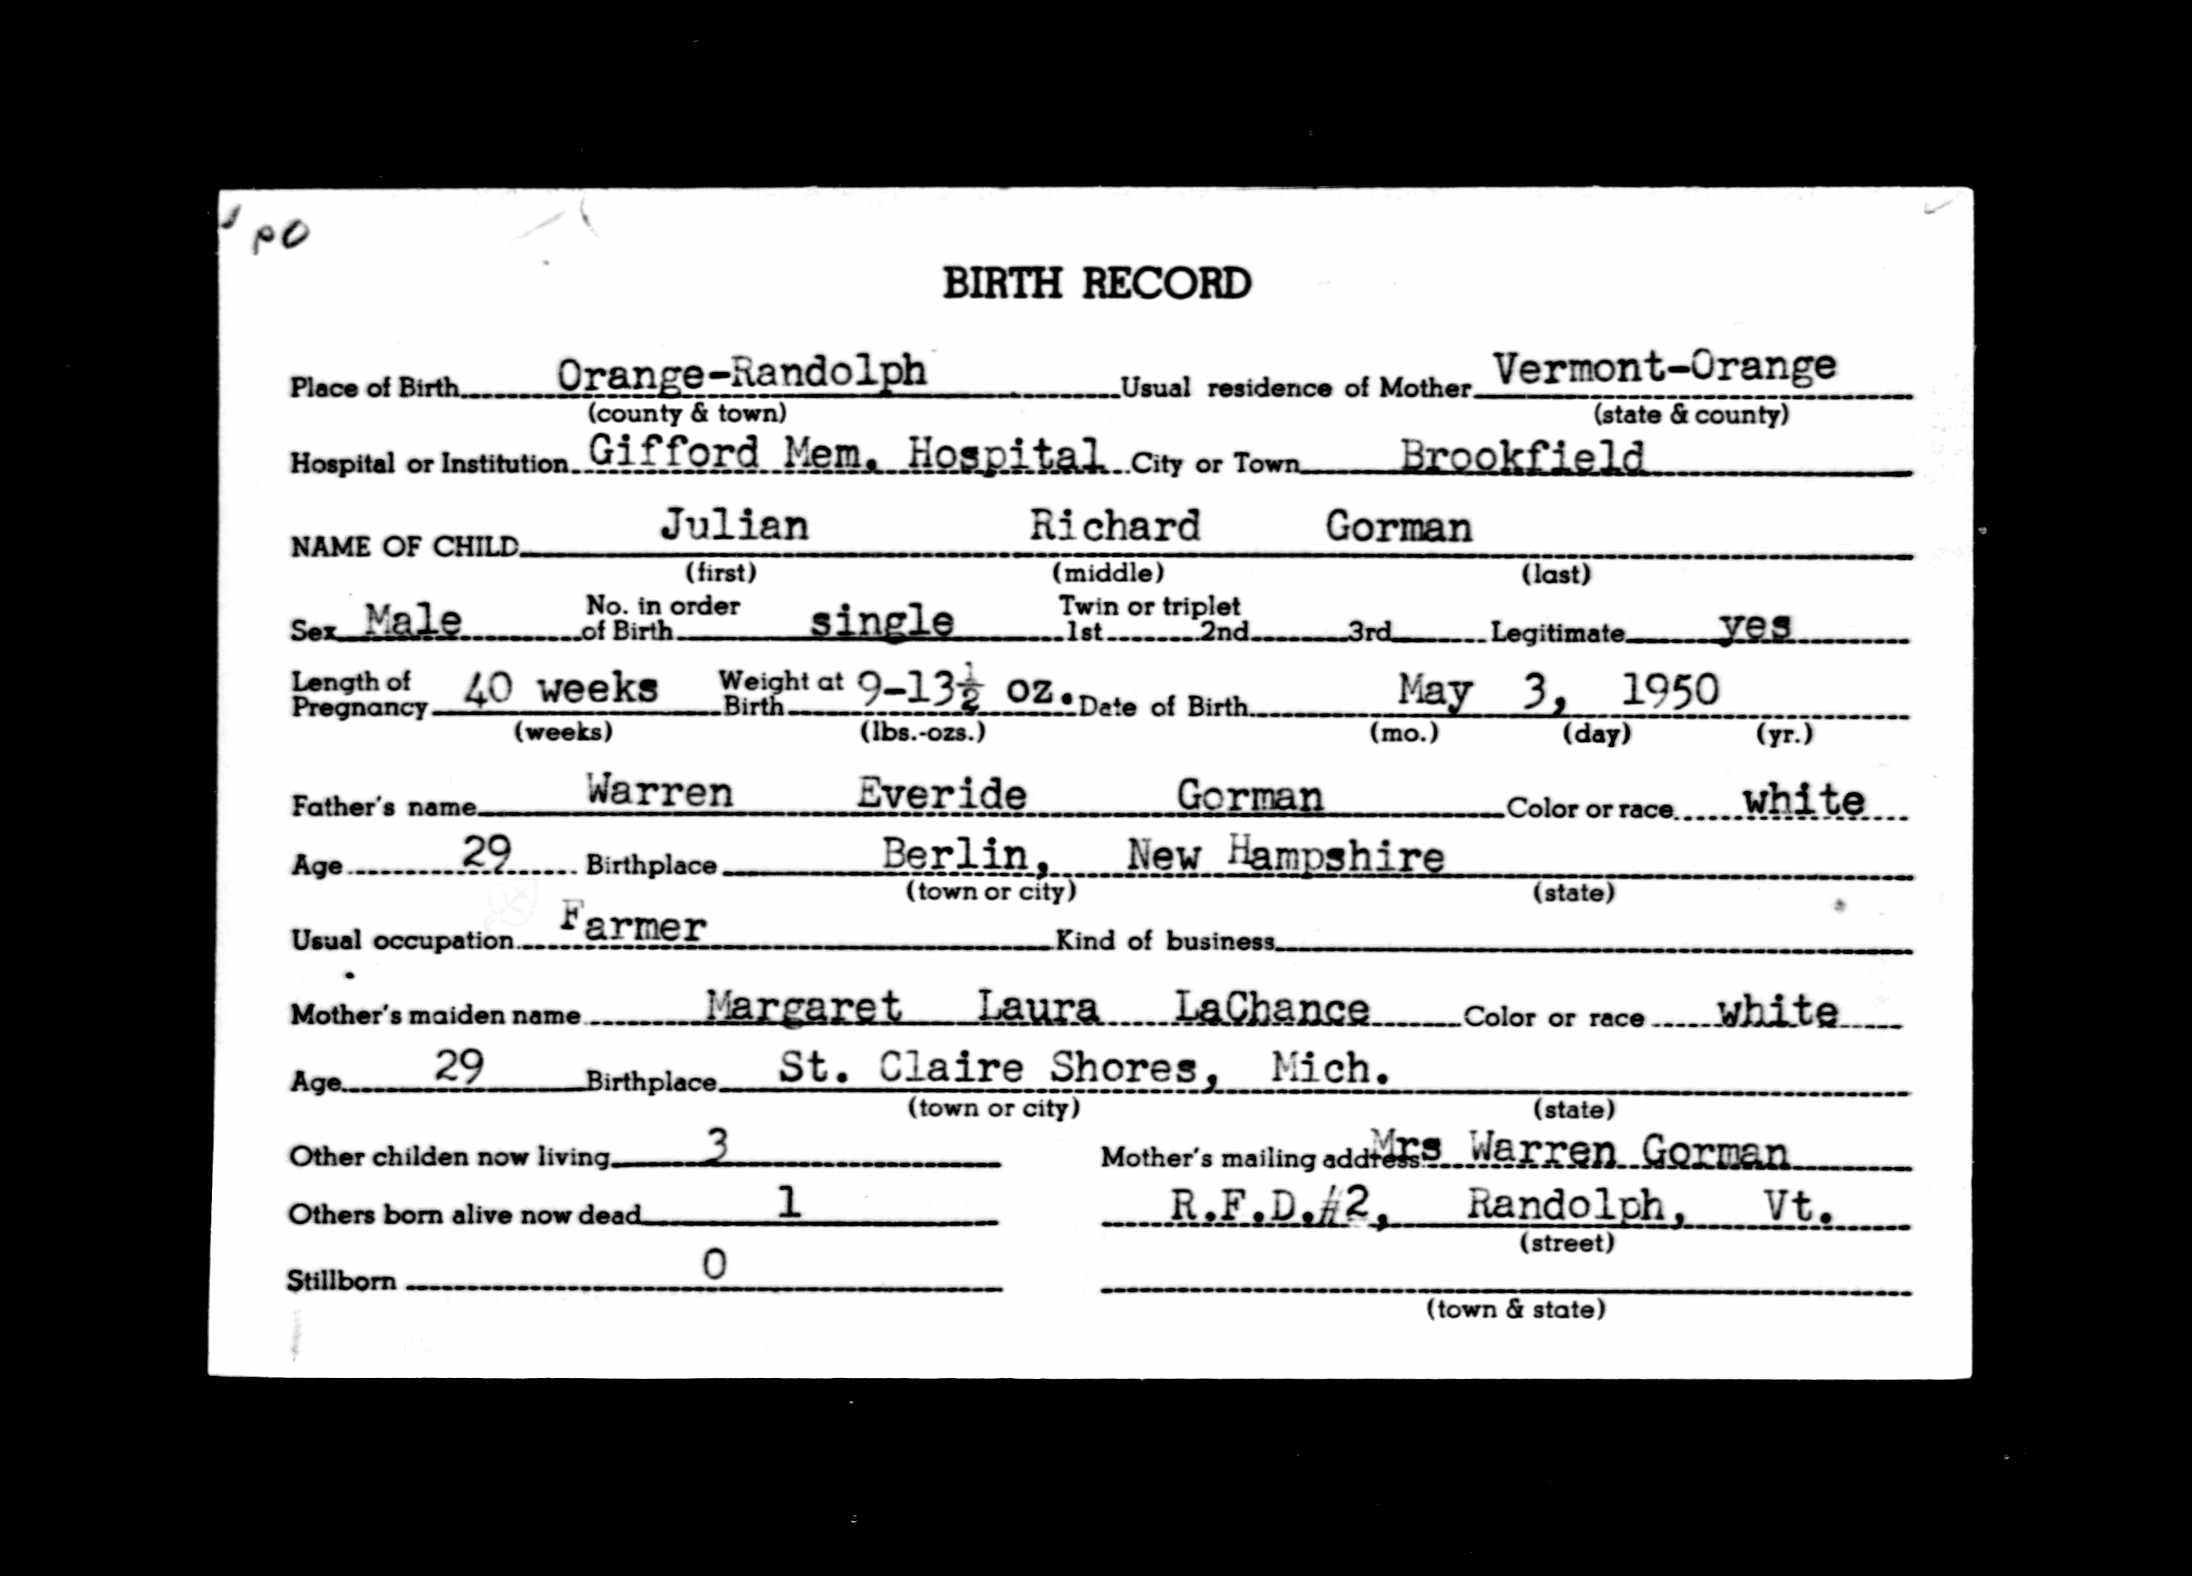 BIRTH RECORD
Place of Birth Orange-Randolph Usual residence of Mother Vermont-Orange
(county & town) (state & county)
Hospital or Institution Gifford Mem. Hospital City or Town Brookfield
NAME OF CHILD Julian Richard Gorman
(first) (middle) (last)
Sex Male No. in order of Birth single Twin or triplet 1st 2nd 3rd Legitimate yes
Length of Pregnancy 40 weeks Weight at Birth 9-13½ oz. Date of Birth May 3, 1950
(weeks) (lbs.-ozs.) (mo.) (day) (yr.)
Father's name Warren Everide Gorman Color or race white
Age 29 Birthplace Berlin, New Hampshire
(town or city) (state)
Usual occupation Farmer Kind of business
Mother's maiden name Margaret Laura LaChance Color or race white
Age 29 Birthplace St. Claire Shores, Mich.
(town or city) (state)
Other childen now living 3 Mother's mailing address Mrs Warren Gorman
Others born alive now dead 1 R.F.D.#2, Randolph, Vt.
(street)
Stillborn 0
(town & state)